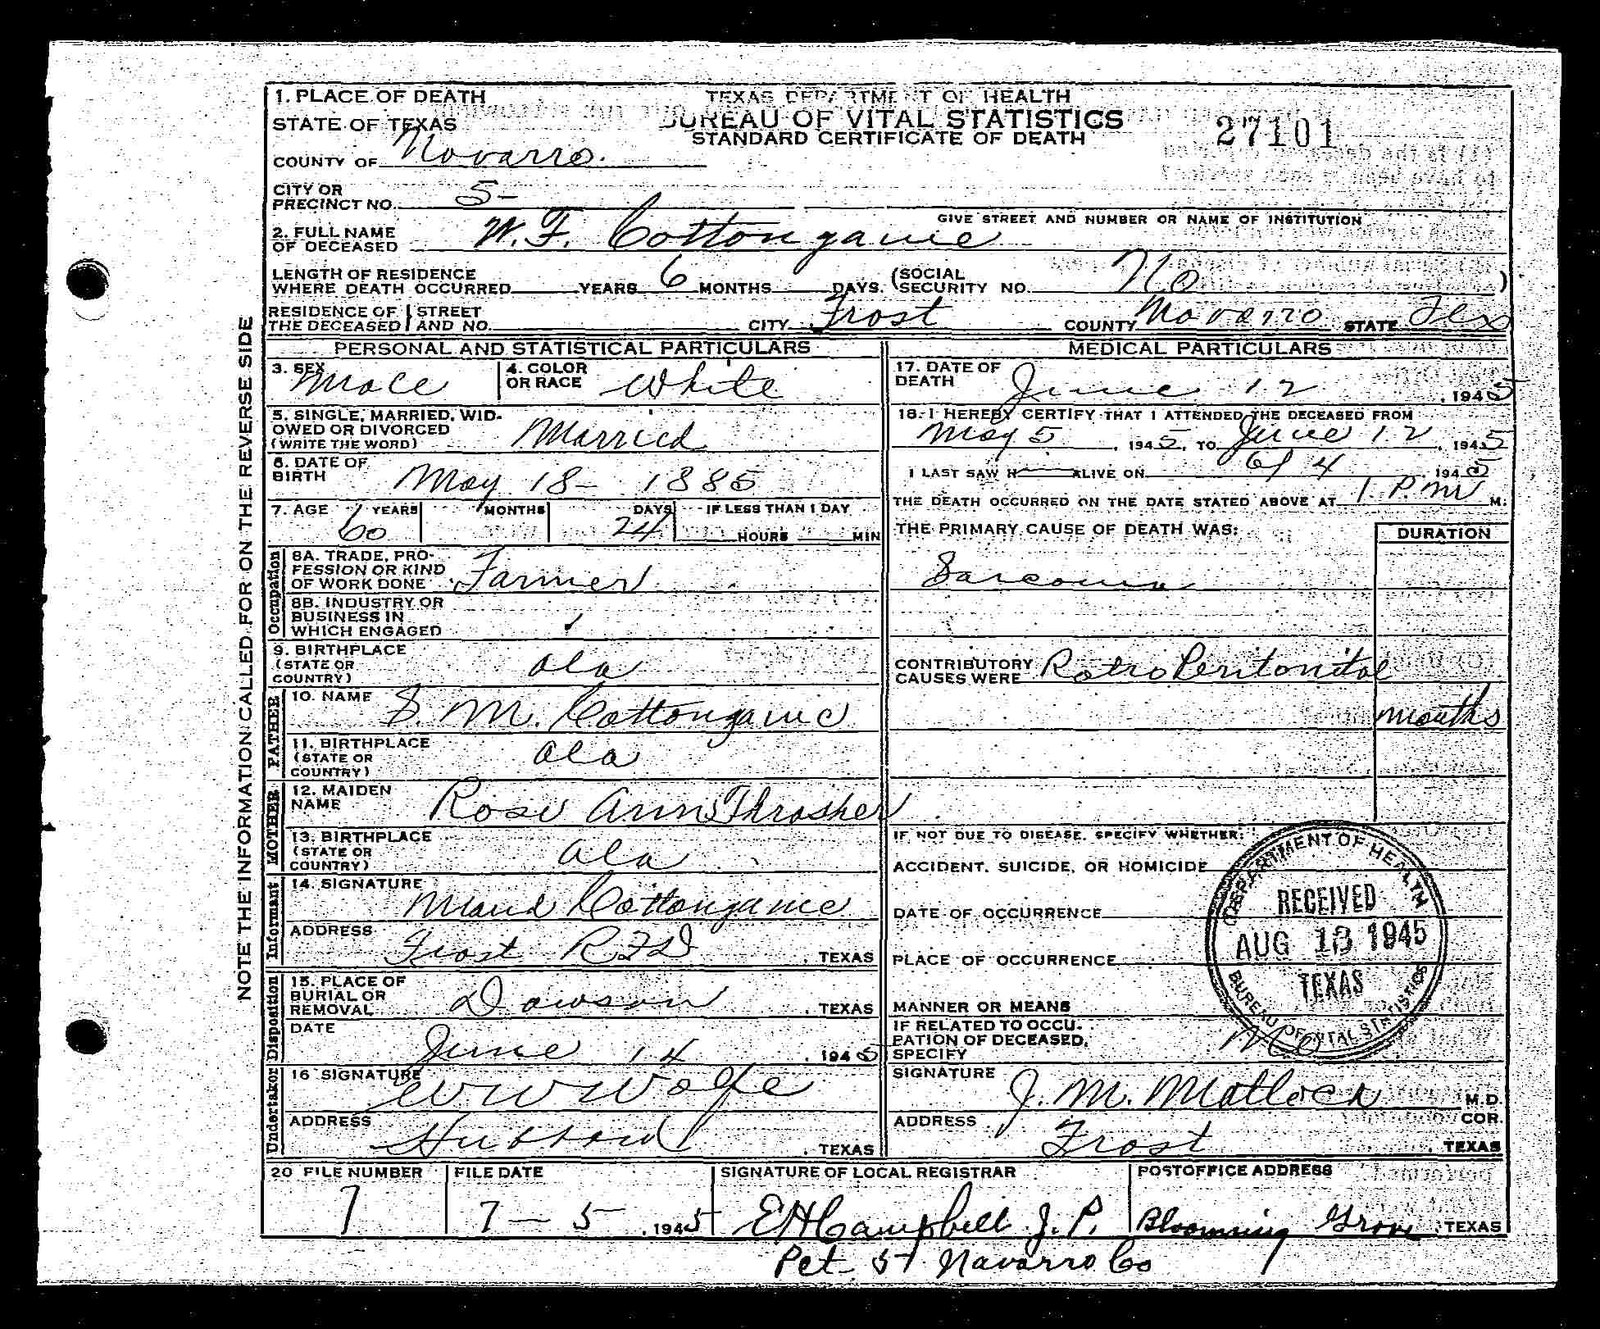 NOTE THE INFORMATION CALLED FOR ON THE REVERSE SIDE
TEXAS DEPARTMENT OF HEALTH
BUREAU OF VITAL STATISTICS
STANDARD CERTIFICATE OF DEATH
27101
1. PLACE OF DEATH
STATE OF TEXAS
COUNTY OF Navarro.
CITY OR PRECINCT NO. 5-
GIVE STREET AND NUMBER OR NAME OF INSTITUTION
2. FULL NAME OF DECEASED W. F. Cottongame
LENGTH OF RESIDENCE WHERE DEATH OCCURRED YEARS 6 MONTHS DAYS. (SOCIAL SECURITY NO. No )
RESIDENCE OF THE DECEASED STREET AND NO. CITY Frost COUNTY Navarro STATE Tex
PERSONAL AND STATISTICAL PARTICULARS
3. SEX Male 4. COLOR OR RACE White
5. SINGLE, MARRIED, WIDOWED OR DIVORCED (WRITE THE WORD) Married
6. DATE OF BIRTH May 18- 1885
7. AGE 60 YEARS MONTHS 24 DAYS IF LESS THAN 1 DAY HOURS MIN
Occupation
8A. TRADE, PROFESSION OR KIND OF WORK DONE Farmer
8B. INDUSTRY OR BUSINESS IN WHICH ENGAGED
9. BIRTHPLACE (STATE OR COUNTRY) Ala
FATHER
10. NAME S. M. Cottongame
11. BIRTHPLACE (STATE OR COUNTRY) Ala
MOTHER
12. MAIDEN NAME Rose Ann Thrasher
13. BIRTHPLACE (STATE OR COUNTRY) Ala
Informant
14. SIGNATURE Maud Cottongame
ADDRESS Frost RFD, TEXAS
Disposition
15. PLACE OF BURIAL OR REMOVAL Dawson, TEXAS
DATE June 14, 1945
Undertaker
16 SIGNATURE W W Wolfe
ADDRESS Hubbard, TEXAS
MEDICAL PARTICULARS
17. DATE OF DEATH June 12, 1945
18. I HEREBY CERTIFY THAT I ATTENDED THE DECEASED FROM
May 5, 1945, TO June 12, 1945
I LAST SAW H ALIVE ON 6/4 1945
THE DEATH OCCURRED ON THE DATE STATED ABOVE AT 1 P.M M.
THE PRIMARY CAUSE OF DEATH WAS: DURATION
Sarcoma
CONTRIBUTORY CAUSES WERE Retro Peritonital
months
IF NOT DUE TO DISEASE, SPECIFY WHETHER:
ACCIDENT, SUICIDE, OR HOMICIDE
DATE OF OCCURRENCE
PLACE OF OCCURRENCE
MANNER OR MEANS
IF RELATED TO OCCUPATION OF DECEASED, SPECIFY No
DEPARTMENT OF HEALTH
RECEIVED
AUG 13 1945
TEXAS
BUREAU OF VITAL STATISTICS
SIGNATURE J. M. Matlock M.D. COR.
ADDRESS Frost, TEXAS
20 FILE NUMBER 7
FILE DATE 7-5, 1945
SIGNATURE OF LOCAL REGISTRAR E H Campbell J. P.
Pct 5 Navarro Co
POSTOFFICE ADDRESS Blooming Grove, TEXAS